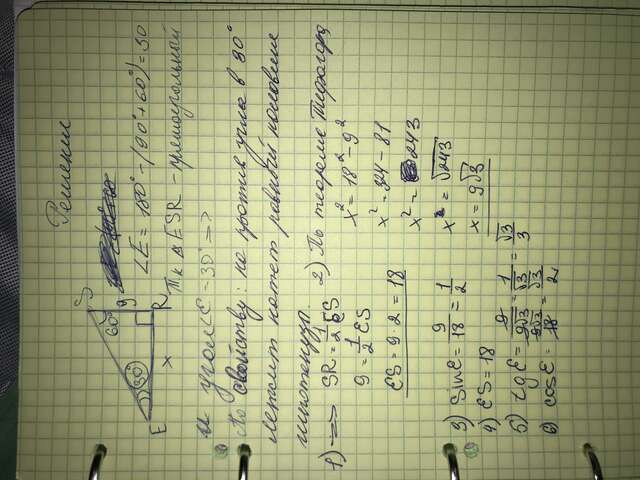 Решение
S
60°
9
30°
E
x
R
∠E = 180° - (90° + 60°) = 30
Тк ∆ ESR - прямоугольный
и угол ∠E = 30° =>
По свойству: но против угла в 30°
лежит катет равный половине
гипотенузы.
1) SR = 1/2 ES
9 = 1/2 ES
ES = 9 · 2 = 18
2) По теореме Пифагора
x² = 18² - 9²
x² = 324 - 81
x² = 243
x = √243
x = 9√3
3) Sin E = 9/18 = 1/2
4) ES = 18
5) tg E = 9/9√3 = 1/√3 √3/√3 = √3/3
6) cos E = 9√3/18 = √3/2